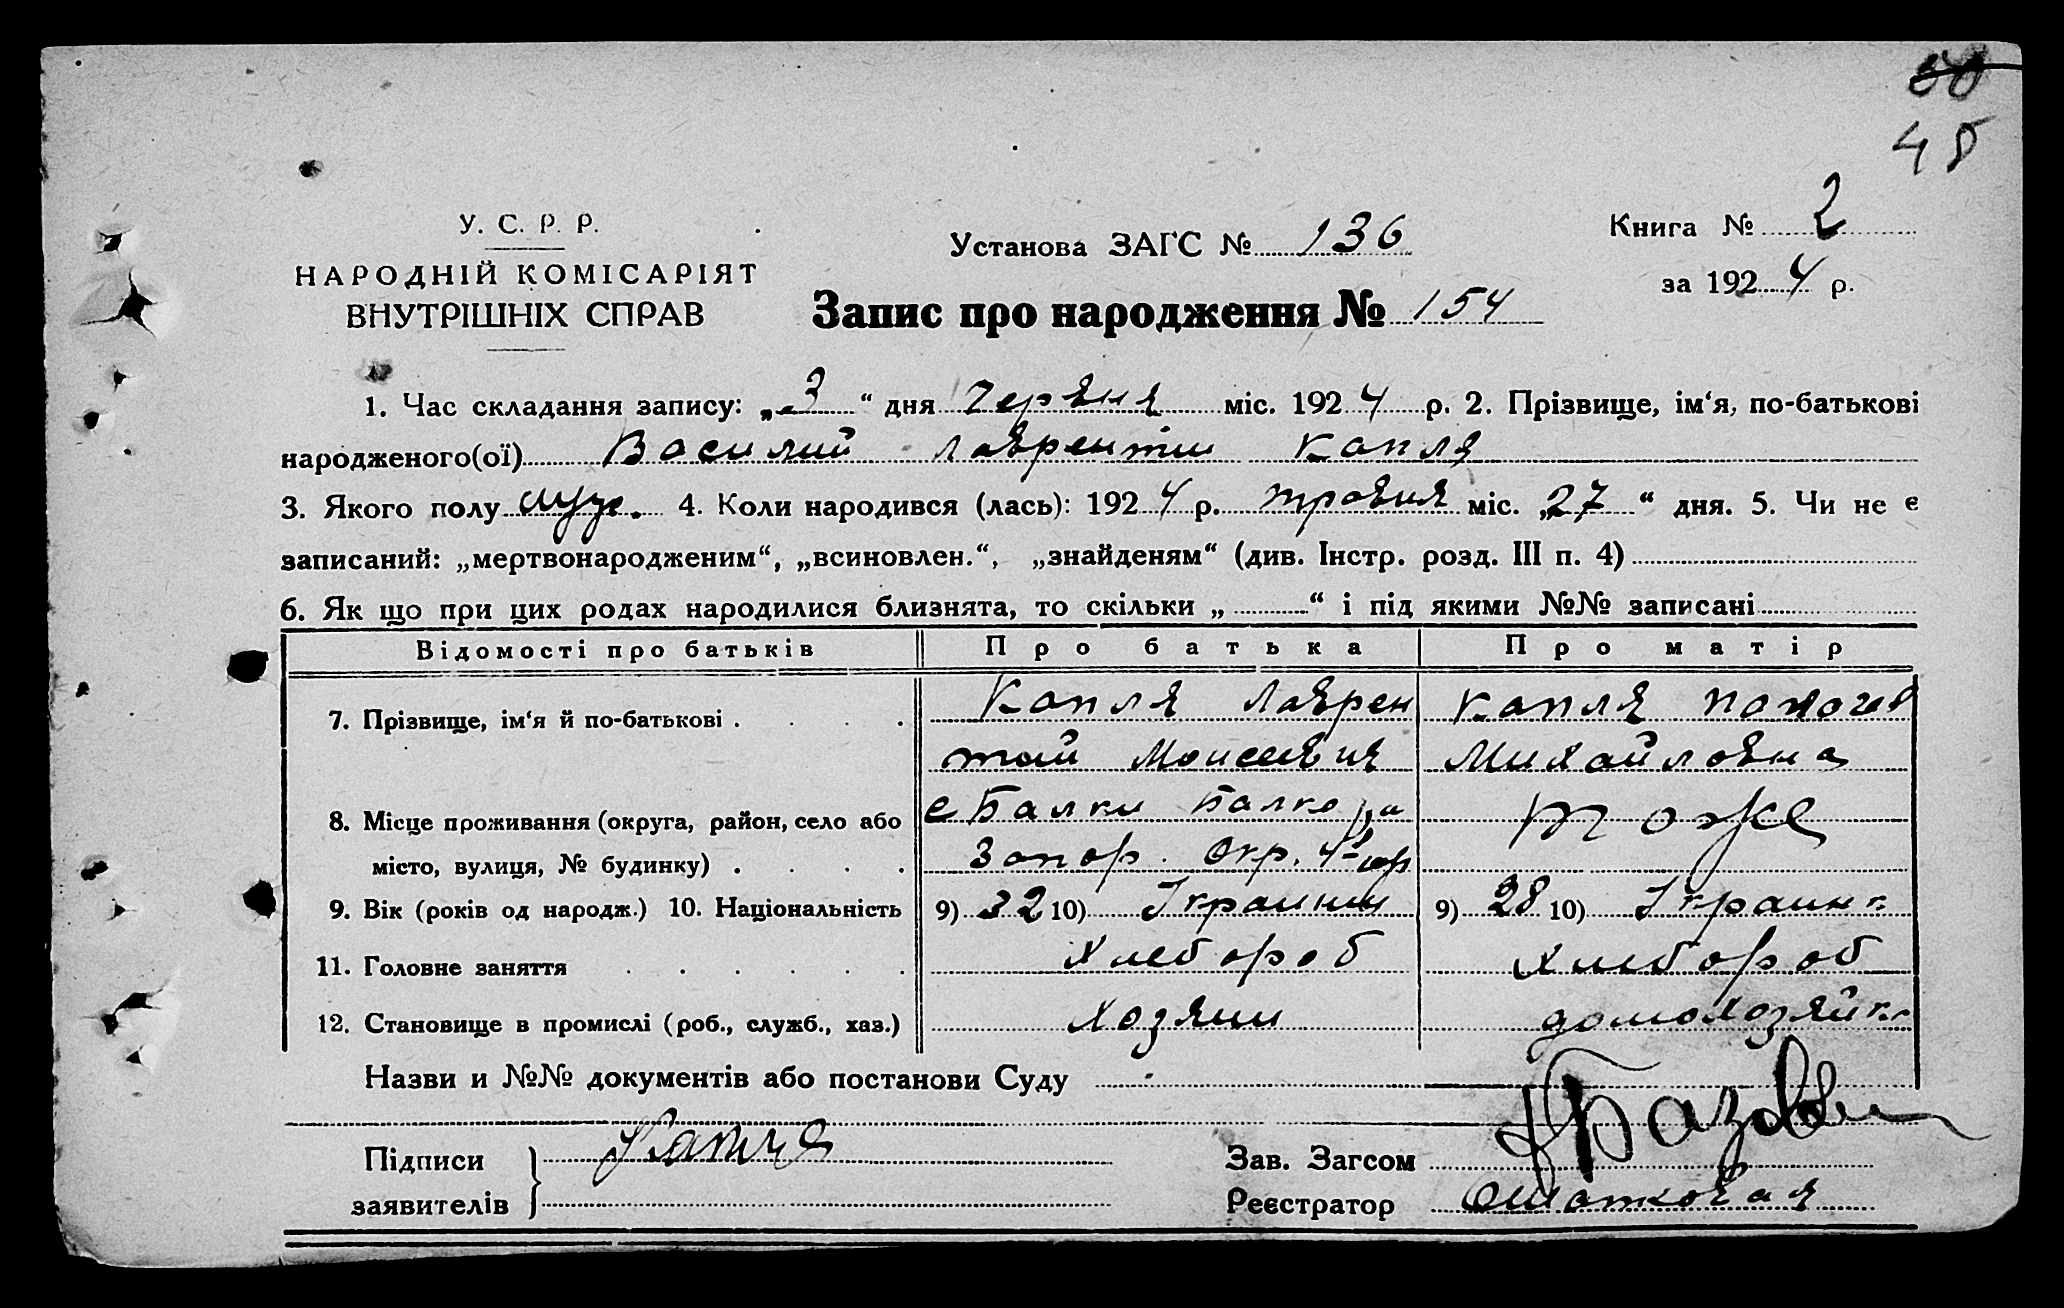 48
У. С. Р. Р.
НАРОДНІЙ КОМІСАРІЯТ
ВНУТРІШНІХ СПРАВ
Установа ЗАГС № 136
Книга № 2
за 1924 р.
Запис про народження № 154
1. Час складання запису: „3“ дня червня міс. 1924 р. 2. Прізвище, ім‘я, по-батькові
народженого(ої) Василий Лаврентии Капля
3. Якого полу муж. 4. Коли народився (лась): 1924 р. травня міс. „27“ дня. 5. Чи не є
записаний: „мертвонародженим“, „всиновлен.“, „знайденям“ (див. Інстр. розд. III п. 4)
6. Як що при цих родах народилися близнята, то скільки „ “ і під якими №№ записані
Відомості про батьків Про батька Про матір
7. Прізвище, ім‘я й по-батькові . . . . Капля Лаврен Капля
тий Моисеевич Михайловна
8. Місце проживання (округа, район, село або с Балки Балко р/а Тоже
місто, вулиця, № будинку) . . . . Запор. Окр.
9. Вік (років од народж.) 10. Національність 9) 32 10) Украинец 9) 28 10) Украинк
11. Головне заняття . . . . . . Хлебороб Хлебороб
12. Становище в промислі (роб., служб., хаз.) Хозяин домохозяйк
Назви и №№ документів або постанови Суду
Підписи Капля Зав. Загсом
заявителів Реєстратор